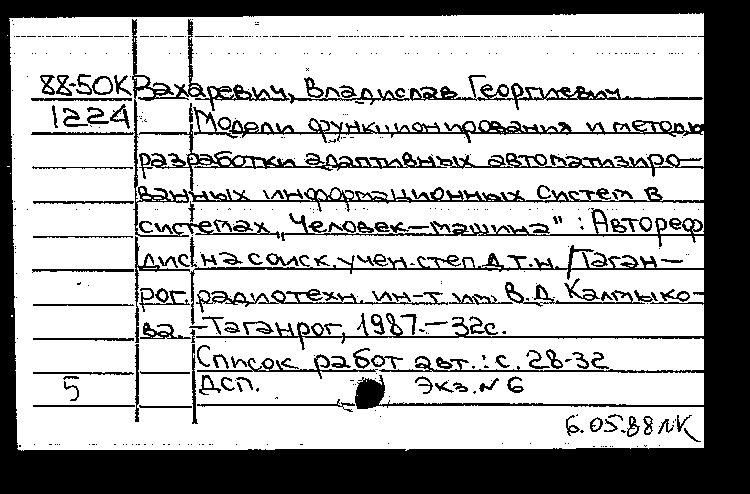 88-50К Захаревич, Владислав Георгиевич
1224 Модели функционирования и методы
разработки адаптивных автоматизиро-
ванных информационных систем в
системах „Человек-машина" : Автореф
дис на соиск. учен. степ. д.т.н. /Таган-
рог. радиотехн. ин-т им. В.Д. Калмыко-
ва. -Таганрог, 1987.-32с.
Список работ авт.: с. 28-32
5 ДСП. Экз. № 6
6.05.88 NK